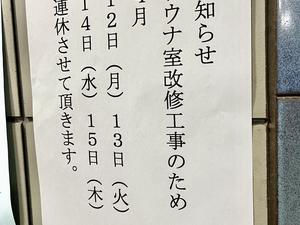 知らせ
ウナ室改修工事のため
月
12日（月）13日（火）
14日（水）15日（木）
連休させて頂きます。